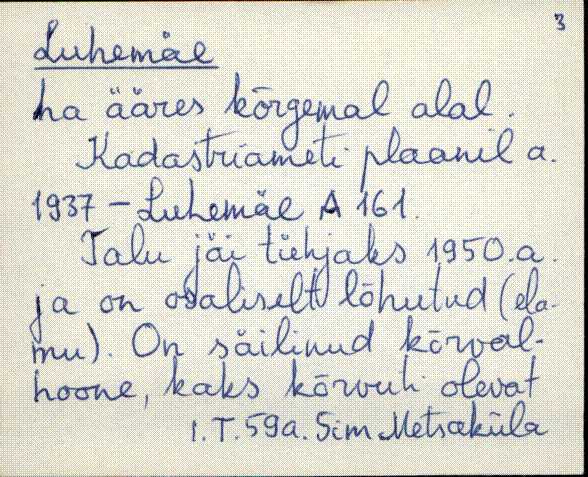 3
Luhemäe
ha ääres kõrgemal alal.
Kadastriameti plaanil a.
1937 – Luhemäe A 161.
Talu jäi tühjaks 1950.a.
ja on osaliselt lõhutud (ela-
mu). On säilinud kõrval-
hoone, kaks kõrvuti olevat
I.T.59a. Sim Metsaküla